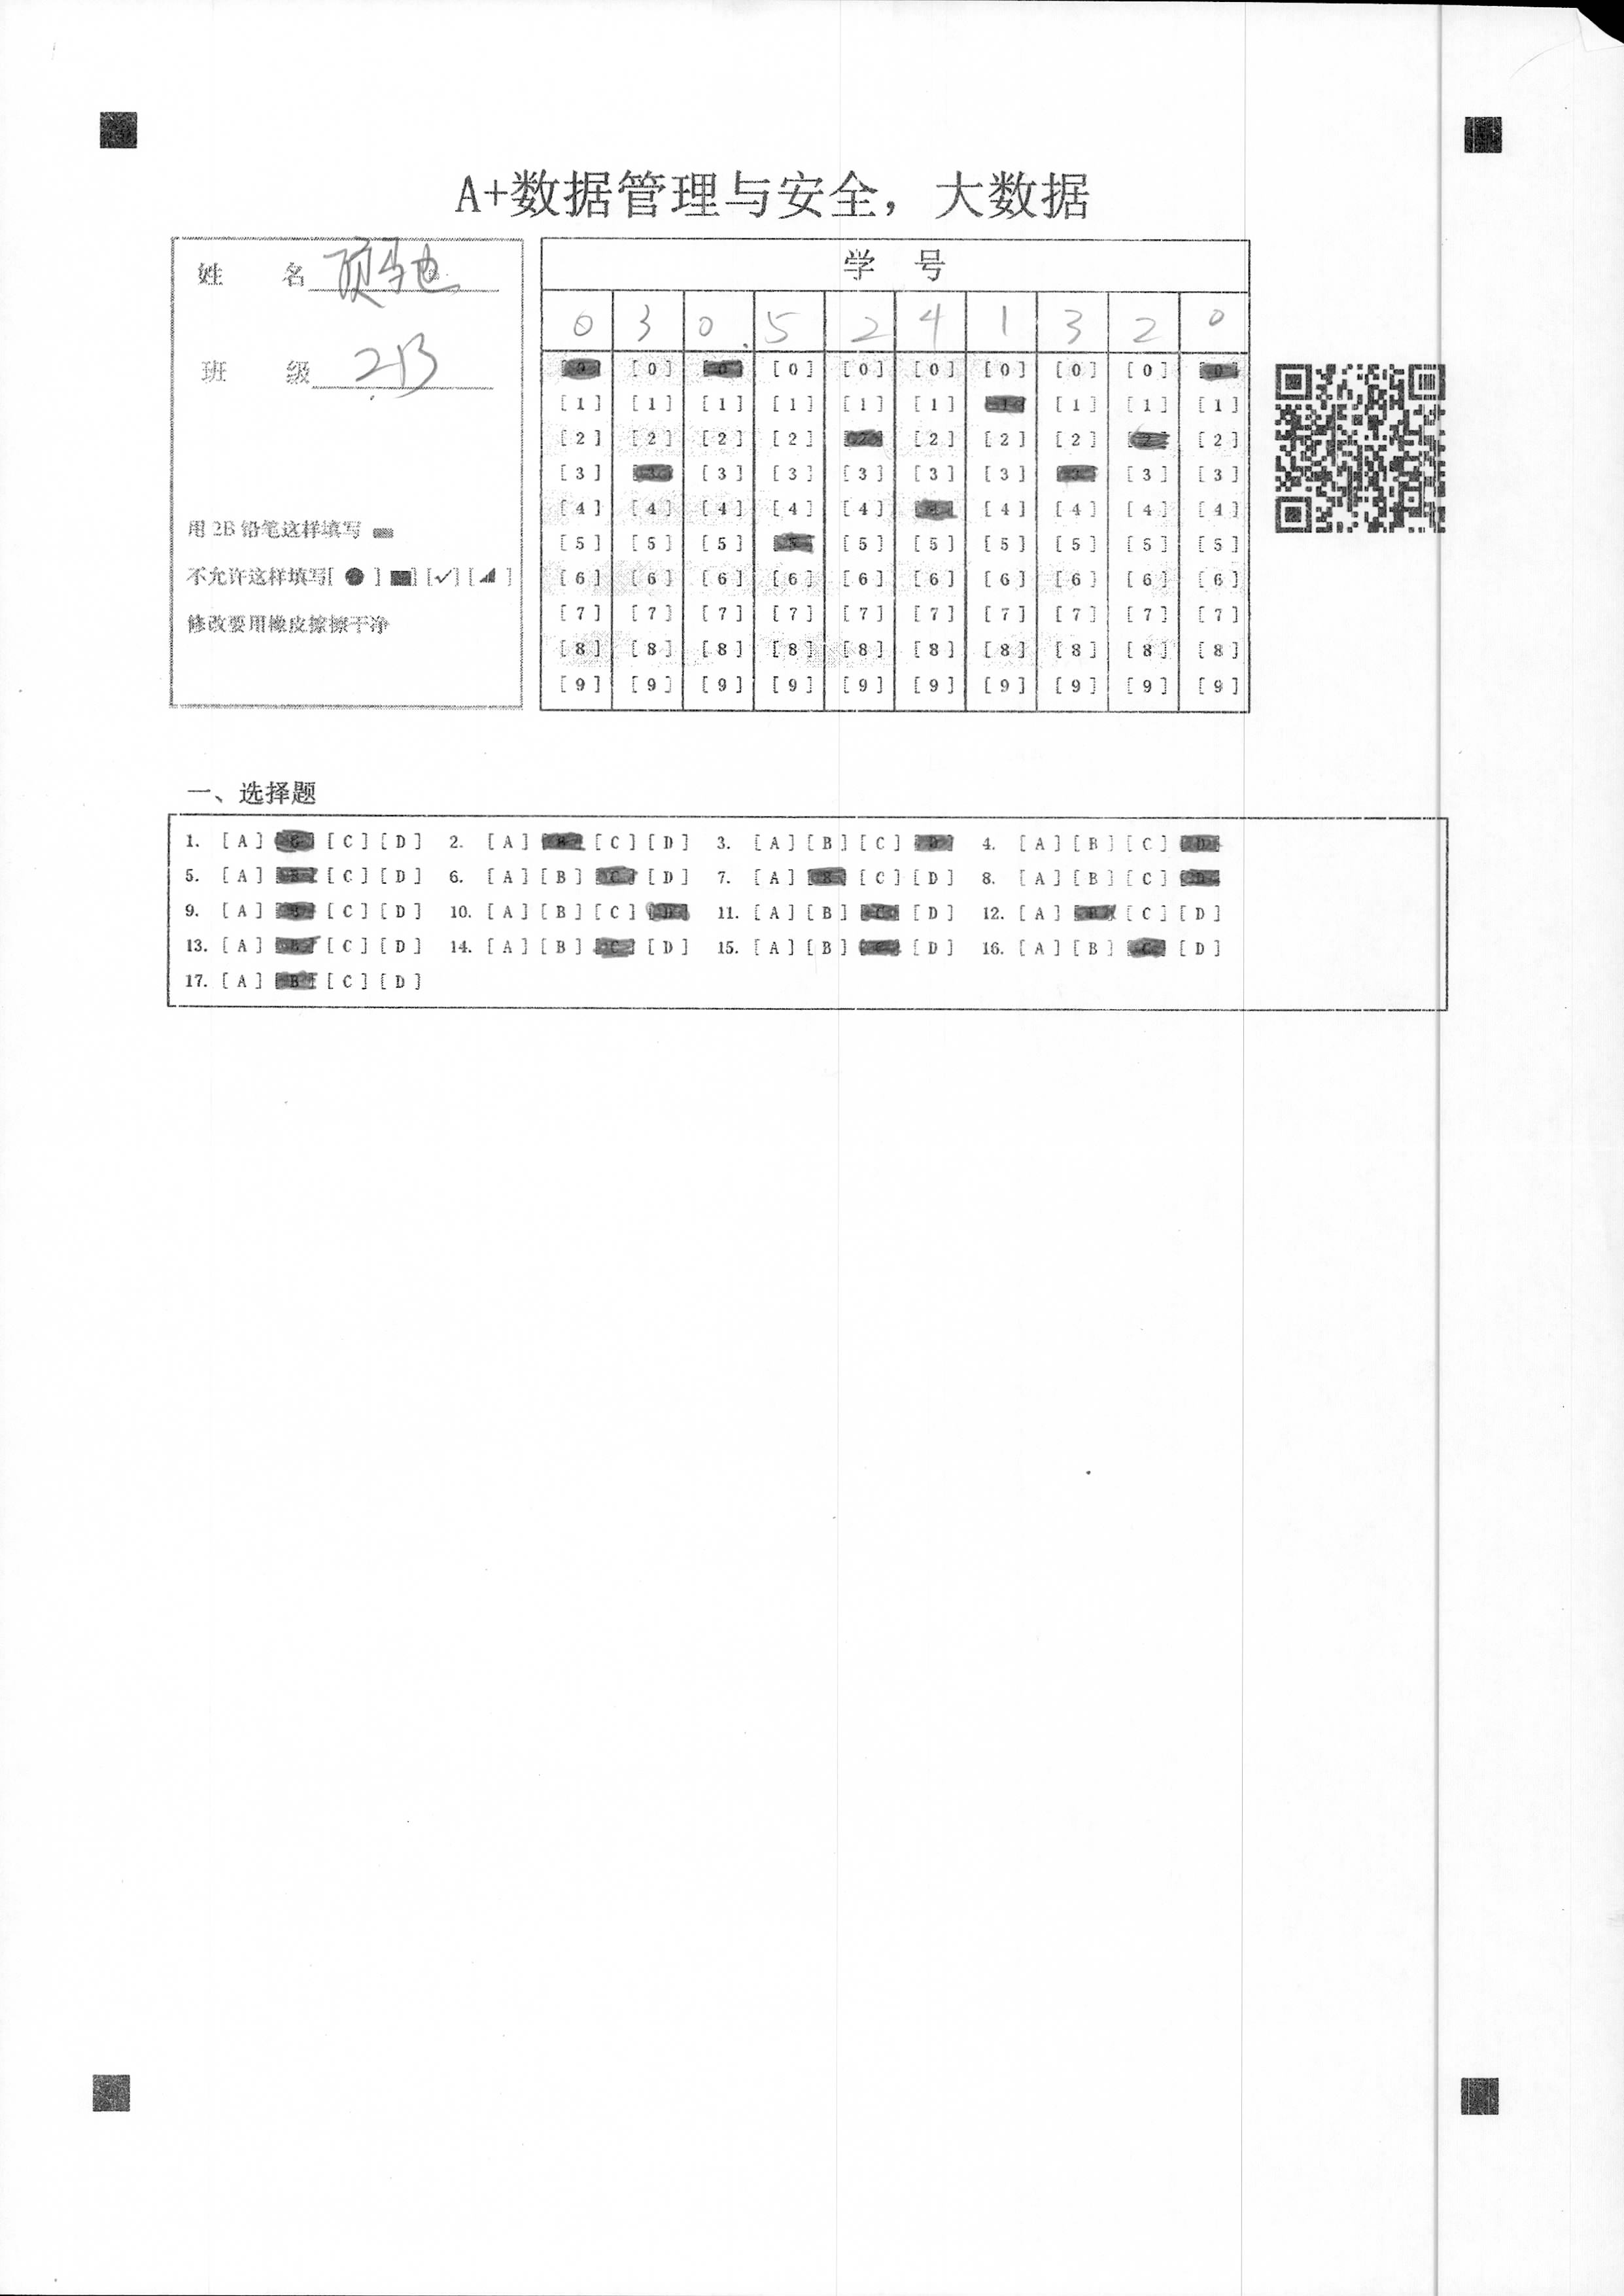 A+数据管理与安全，大数据
姓 名
班 级 213
用 2B 铅笔这样填写
不允许这样填写[ ● ] ■] [✓] [◢ ]
修改要用橡皮擦擦干净
学 号
0 3 0 5 2 4 1 3 2 0
[0] [0] [0] [0] [0] [0] [0] [0] [0] [0]
[1] [1] [1] [1] [1] [1] [1] [1] [1] [1]
[2] [2] [2] [2] [2] [2] [2] [2] [2] [2]
[3] [3] [3] [3] [3] [3] [3] [3] [3] [3]
[4] [4] [4] [4] [4] [4] [4] [4] [4] [4]
[5] [5] [5] [5] [5] [5] [5] [5] [5] [5]
[6] [6] [6] [6] [6] [6] [6] [6] [6] [6]
[7] [7] [7] [7] [7] [7] [7] [7] [7] [7]
[8] [8] [8] [8] [8] [8] [8] [8] [8] [8]
[9] [9] [9] [9] [9] [9] [9] [9] [9] [9]
一、选择题
1. [A] [B] [C] [D] 2. [A] [B] [C] [D] 3. [A] [B] [C] [D] 4. [A] [B] [C] [D]
5. [A] [B] [C] [D] 6. [A] [B] [C] [D] 7. [A] [B] [C] [D] 8. [A] [B] [C] [D]
9. [A] [B] [C] [D] 10. [A] [B] [C] [D] 11. [A] [B] [C] [D] 12. [A] [B] [C] [D]
13. [A] [B] [C] [D] 14. [A] [B] [C] [D] 15. [A] [B] [C] [D] 16. [A] [B] [C] [D]
17. [A] [B] [C] [D]